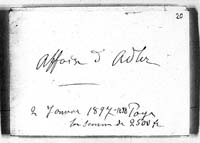 20
Affaire d'Adler
2 Janvier 1897
la somme de 2500 fr